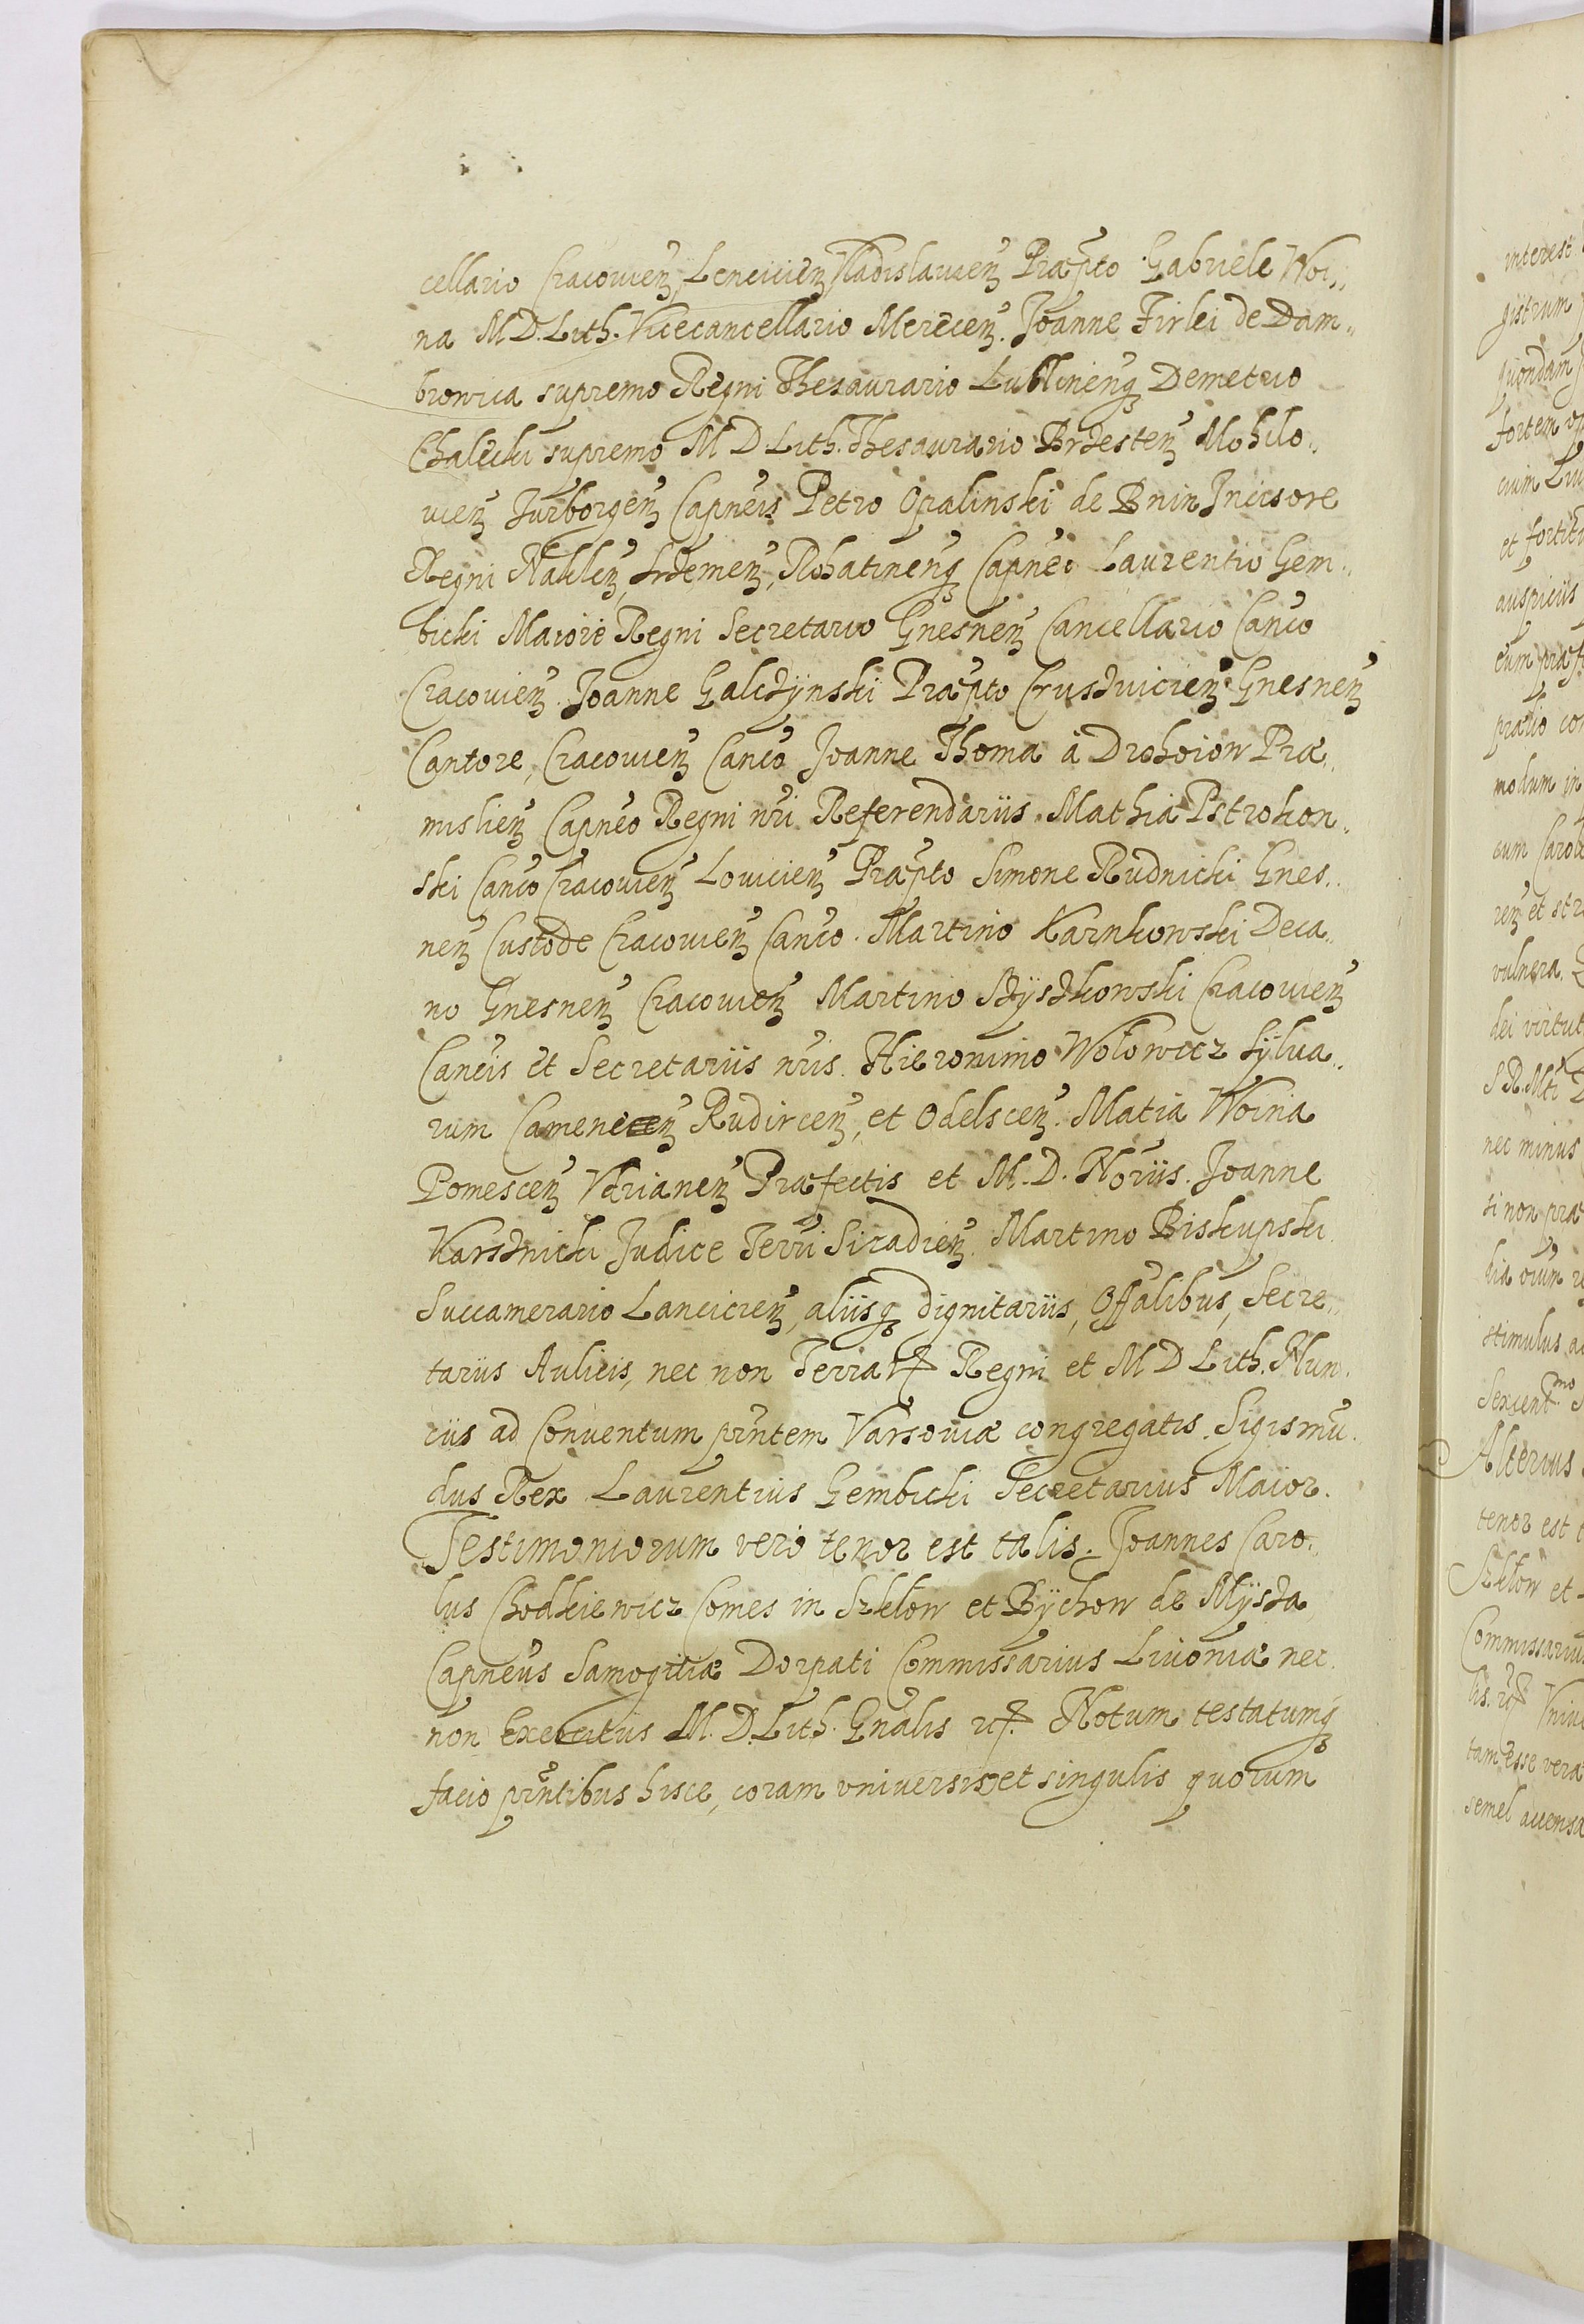 cellario Cracovien, Lencicien, Vladislavien Præpto. Gabriele Woi,,
na M.D. Lith. Vicecancellario Merecen. Joanne Firlei de Dam,,
browica supremo Regni Thesaurario Lublinenq Demetrio
Chalecki supremo M.D. Lith. Thesaurario Brzesten Mohilo,,
vien Jurborgen Capneis Petro Opalinski de Bnin Incisore
Regni Naklen, Srzemen, Rohatinenq Capneo Laurentio Gem,,
bicki Maiore Regni Secretario Gnesnen Cancellario Canco
Cracovien. Joanne Galczÿnski Præpto Cruszvicien Gnesnen
Cantore, Cracovien Canco Joanne Thoma à Drohoiow Præ,,
mislien Capneo Regni nri Referendariis. Mathia Pstrokon,,
ski Canco Cracovien Lovicien Præpto Simone Rudnicki Gnes,,
nen Custode Cracovien Canco. Martino Karnkowski Deca,,
no Gnesnen Cracovien Martino Szÿszkowski Cracovien
Cancis et Secretariis nris. Hieronimo Wolowicz Sÿlva,,
rum Camenecen Rudircen, et Odelscen. Matia Woina
Pomescen Vdrianen Præfectis et M.D. Noriis. Joanne
Karsznicki Judice Terri Siradien. Martino Biskupski
Succamerario Lancicien, aliisq dignitariis, Offalibus, Secre,,
tariis Aulicis, nec non Terrar Regni et M D Lith. Nun,,
ciis ad Conventum prntem Varsoviæ congregatis. Sigismu,,
dus Rex Laurentius Gembicki Secretarius Maior.
Testimoniorum vero tenor est talis. Joannes Caro,,
lus Chodkiewicz Comes in Szklow et Bÿchow de Mÿsza
Capneus Samogitiæ Dorpati Commissarius Livoniæ nec
non Exercitus M.D. Lith. Gnalis rc. Notum testatumq
facio prntibus hisce, coram vniversis et singulis quorum
interest
gistrum
quondam
fortem
cium Liv
et fortit
auspiciis
cum præf
prælio co
modum in
cum Carol
ren et str
vulnera.
dei virtut
S R. Mti
nec minus
si non præ
dia oium
stimulus a
Sexcent mo
Alterius
tenor est
Szklow et
Commissariu
lis. rc Vniv
tam esse vera
semel accensa